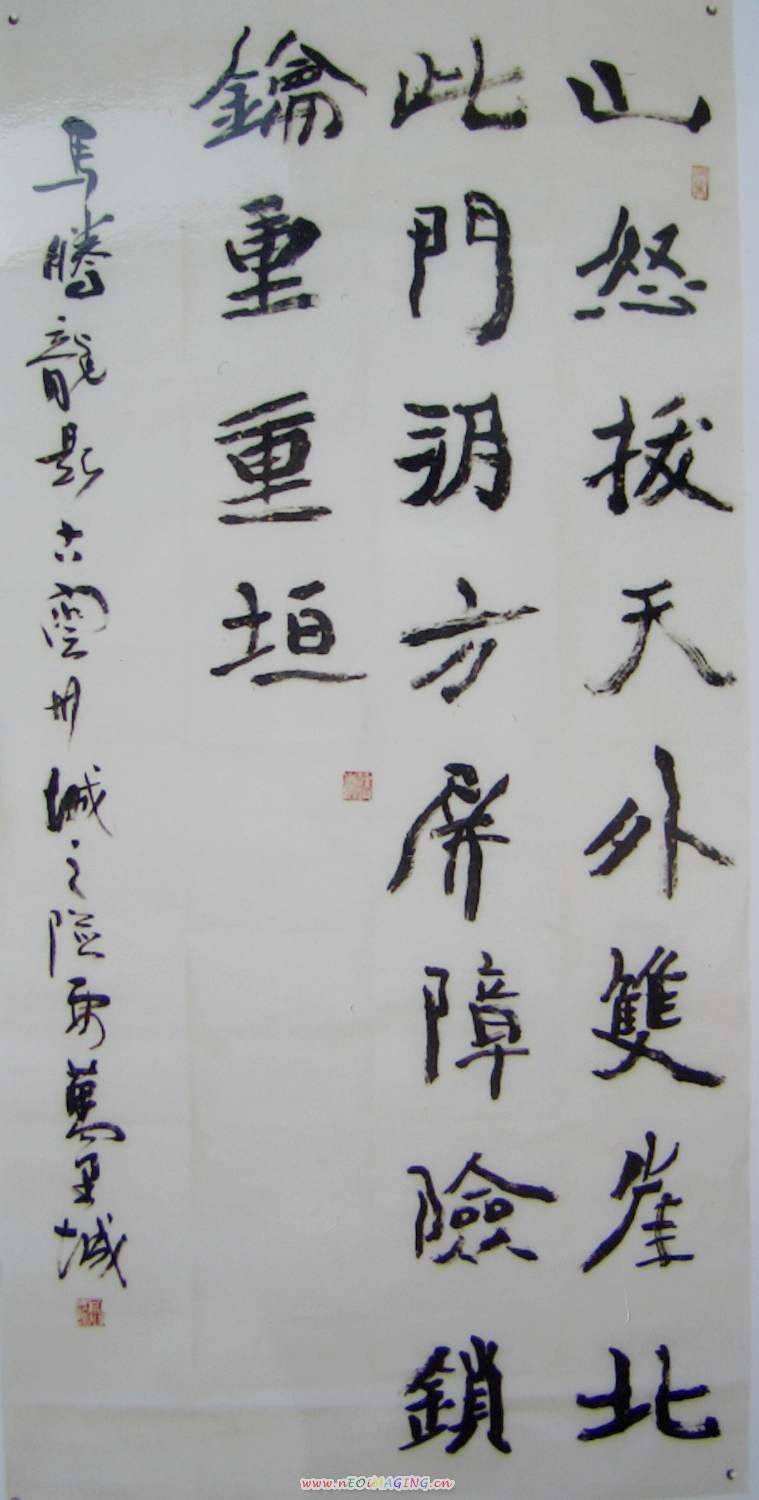 山怒拔天外雙崖北
此門朔方屏障險鎖
鑰重重垣
馬騰龍題古雲州城之險要萬里城
www.nEOiMAGiNG.cn